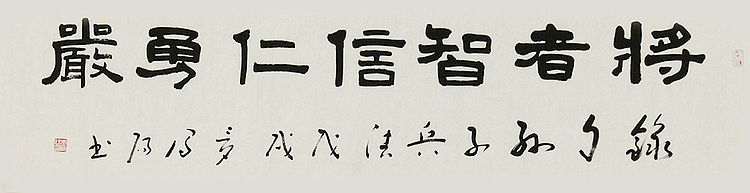 將者智信仁勇嚴
錄自孫子兵法戊戌